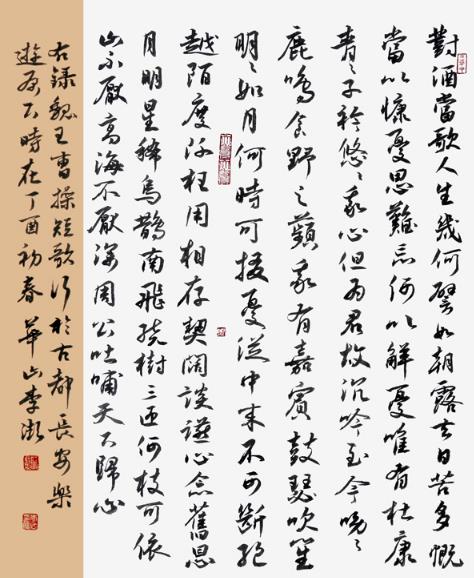 對酒當歌人生幾何譬如朝露去日苦多慨
當以慷憂思難忘何以解憂唯有杜康
青〻子衿悠〻我心但为君故沉吟至今呦〻
鹿鳴食野之蘋我有嘉賓鼓瑟吹笙
明〻如月何時可掇憂從中來不可斷絕
越陌度阡枉用相存契闊談讌心念舊恩
月明星稀烏鵲南飛繞樹三匝何枝可依
山不厭高海不厭深周公吐哺天下歸心
右錄魏王曹操短歌行於古都長安樂
遊原下時在丁酉初春華山李